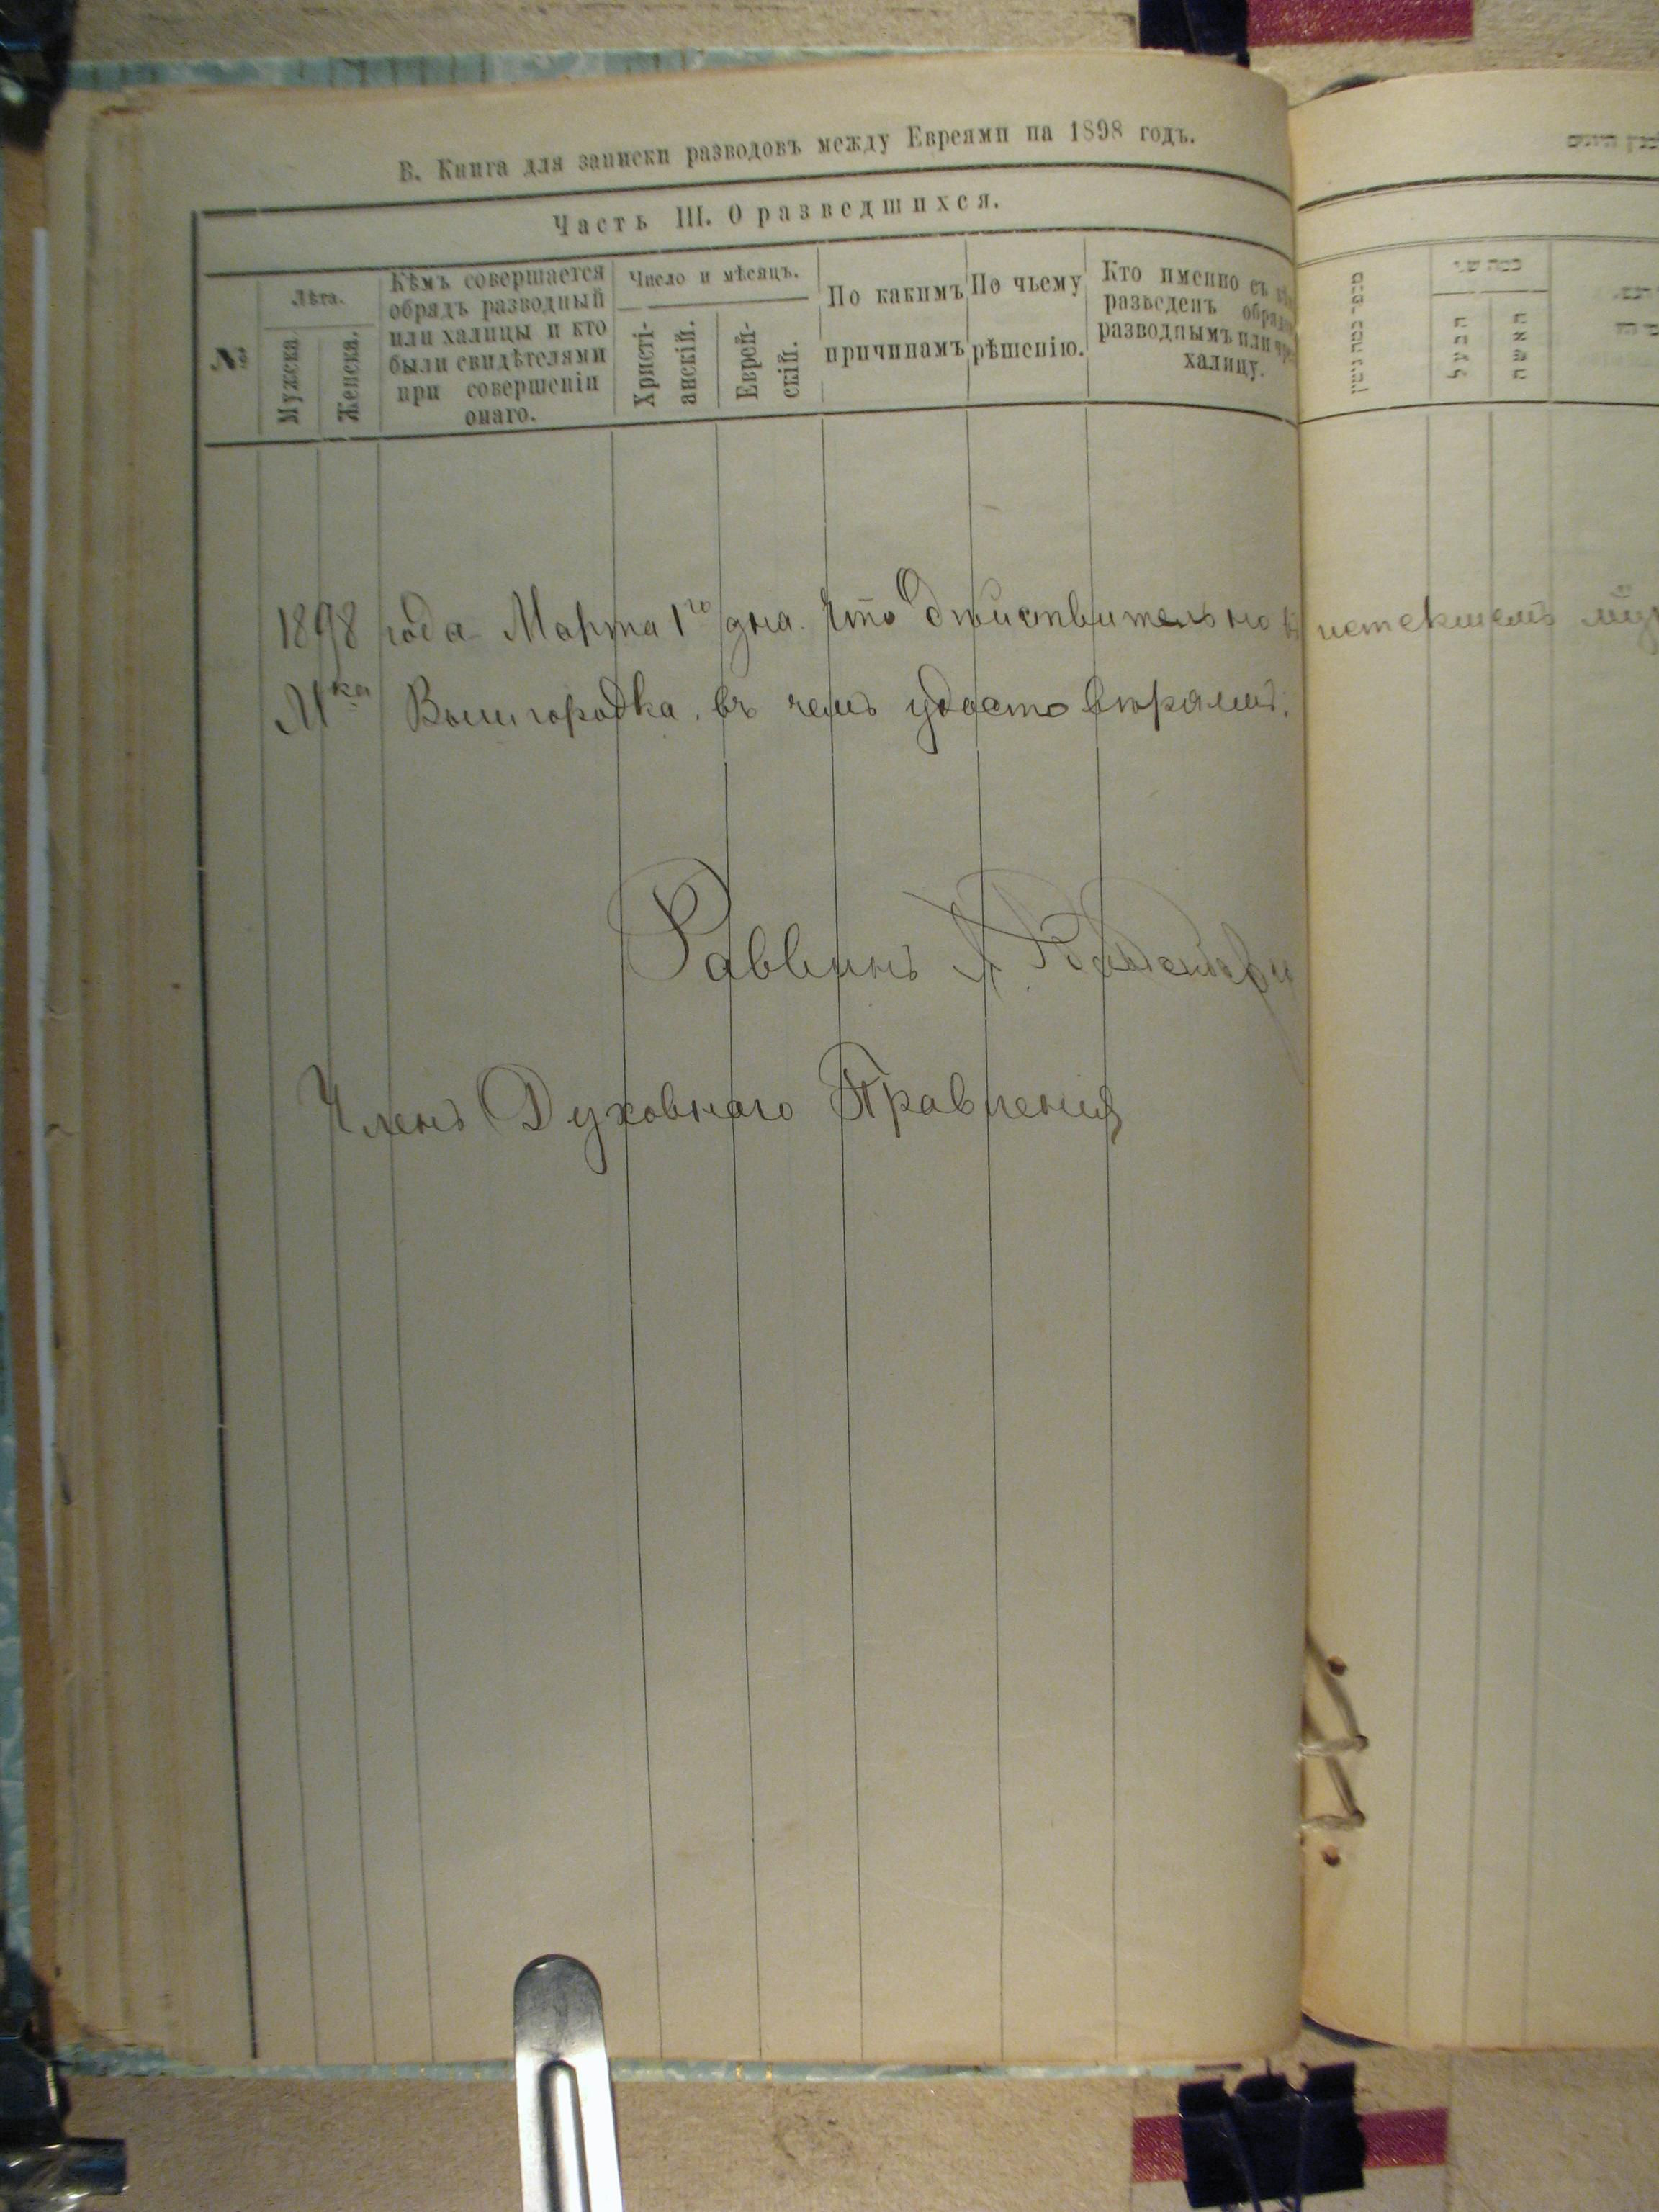 В. Книга для записки разводовъ между Евреями на 1898 годъ.
Часть III. О разведшихся.
№
Лѣта.
Мужска.
Женска.
Кѣмъ совершается
обрядъ разводный
или халицы и кто
были свидѣтелями
при совершеніи
онаго.
Число и мѣсяцъ.
Христі-
анскій.
Еврей-
скій.
По какимъ
причинамъ
По чьему
рѣшенію.
Кто именно съ
разведенъ
разводнымъ или
халицу.
הבעל
האשה
1898 года Марта 1го дня. Что действительно въ истекшемъ
Мка Вышгородка, въ чемъ удостоверяемъ:
Раввинъ
Членъ Духовнаго Правления